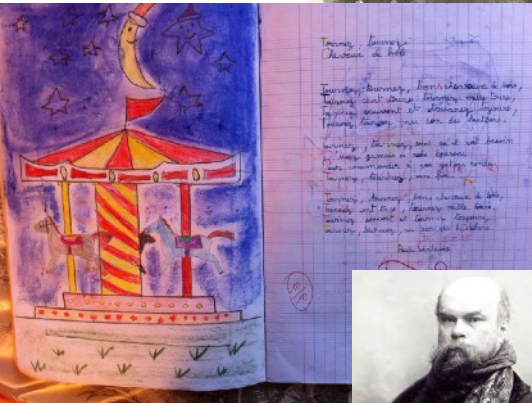 Tournez, tournez
Chevaux de bois
Tournez, tournez, bons chevaux de bois,
Tournez cent tours, tournez mille tours,
Tournez souvent et tournez toujours,
Tournez, tournez au son des hautbois.
Tournez, tournez, sans qu'il soit besoin
D'user jamais de nuls éperons
Pour commander à vos galops ronds
Tournez, tournez, sans
Tournez, tournez, bons chevaux de bois,
Tournez cent tours, tournez mille tours,
Tournez souvent et tournez toujours,
Tournez, tournez au son des hautbois
Paul Verlaine
10
10